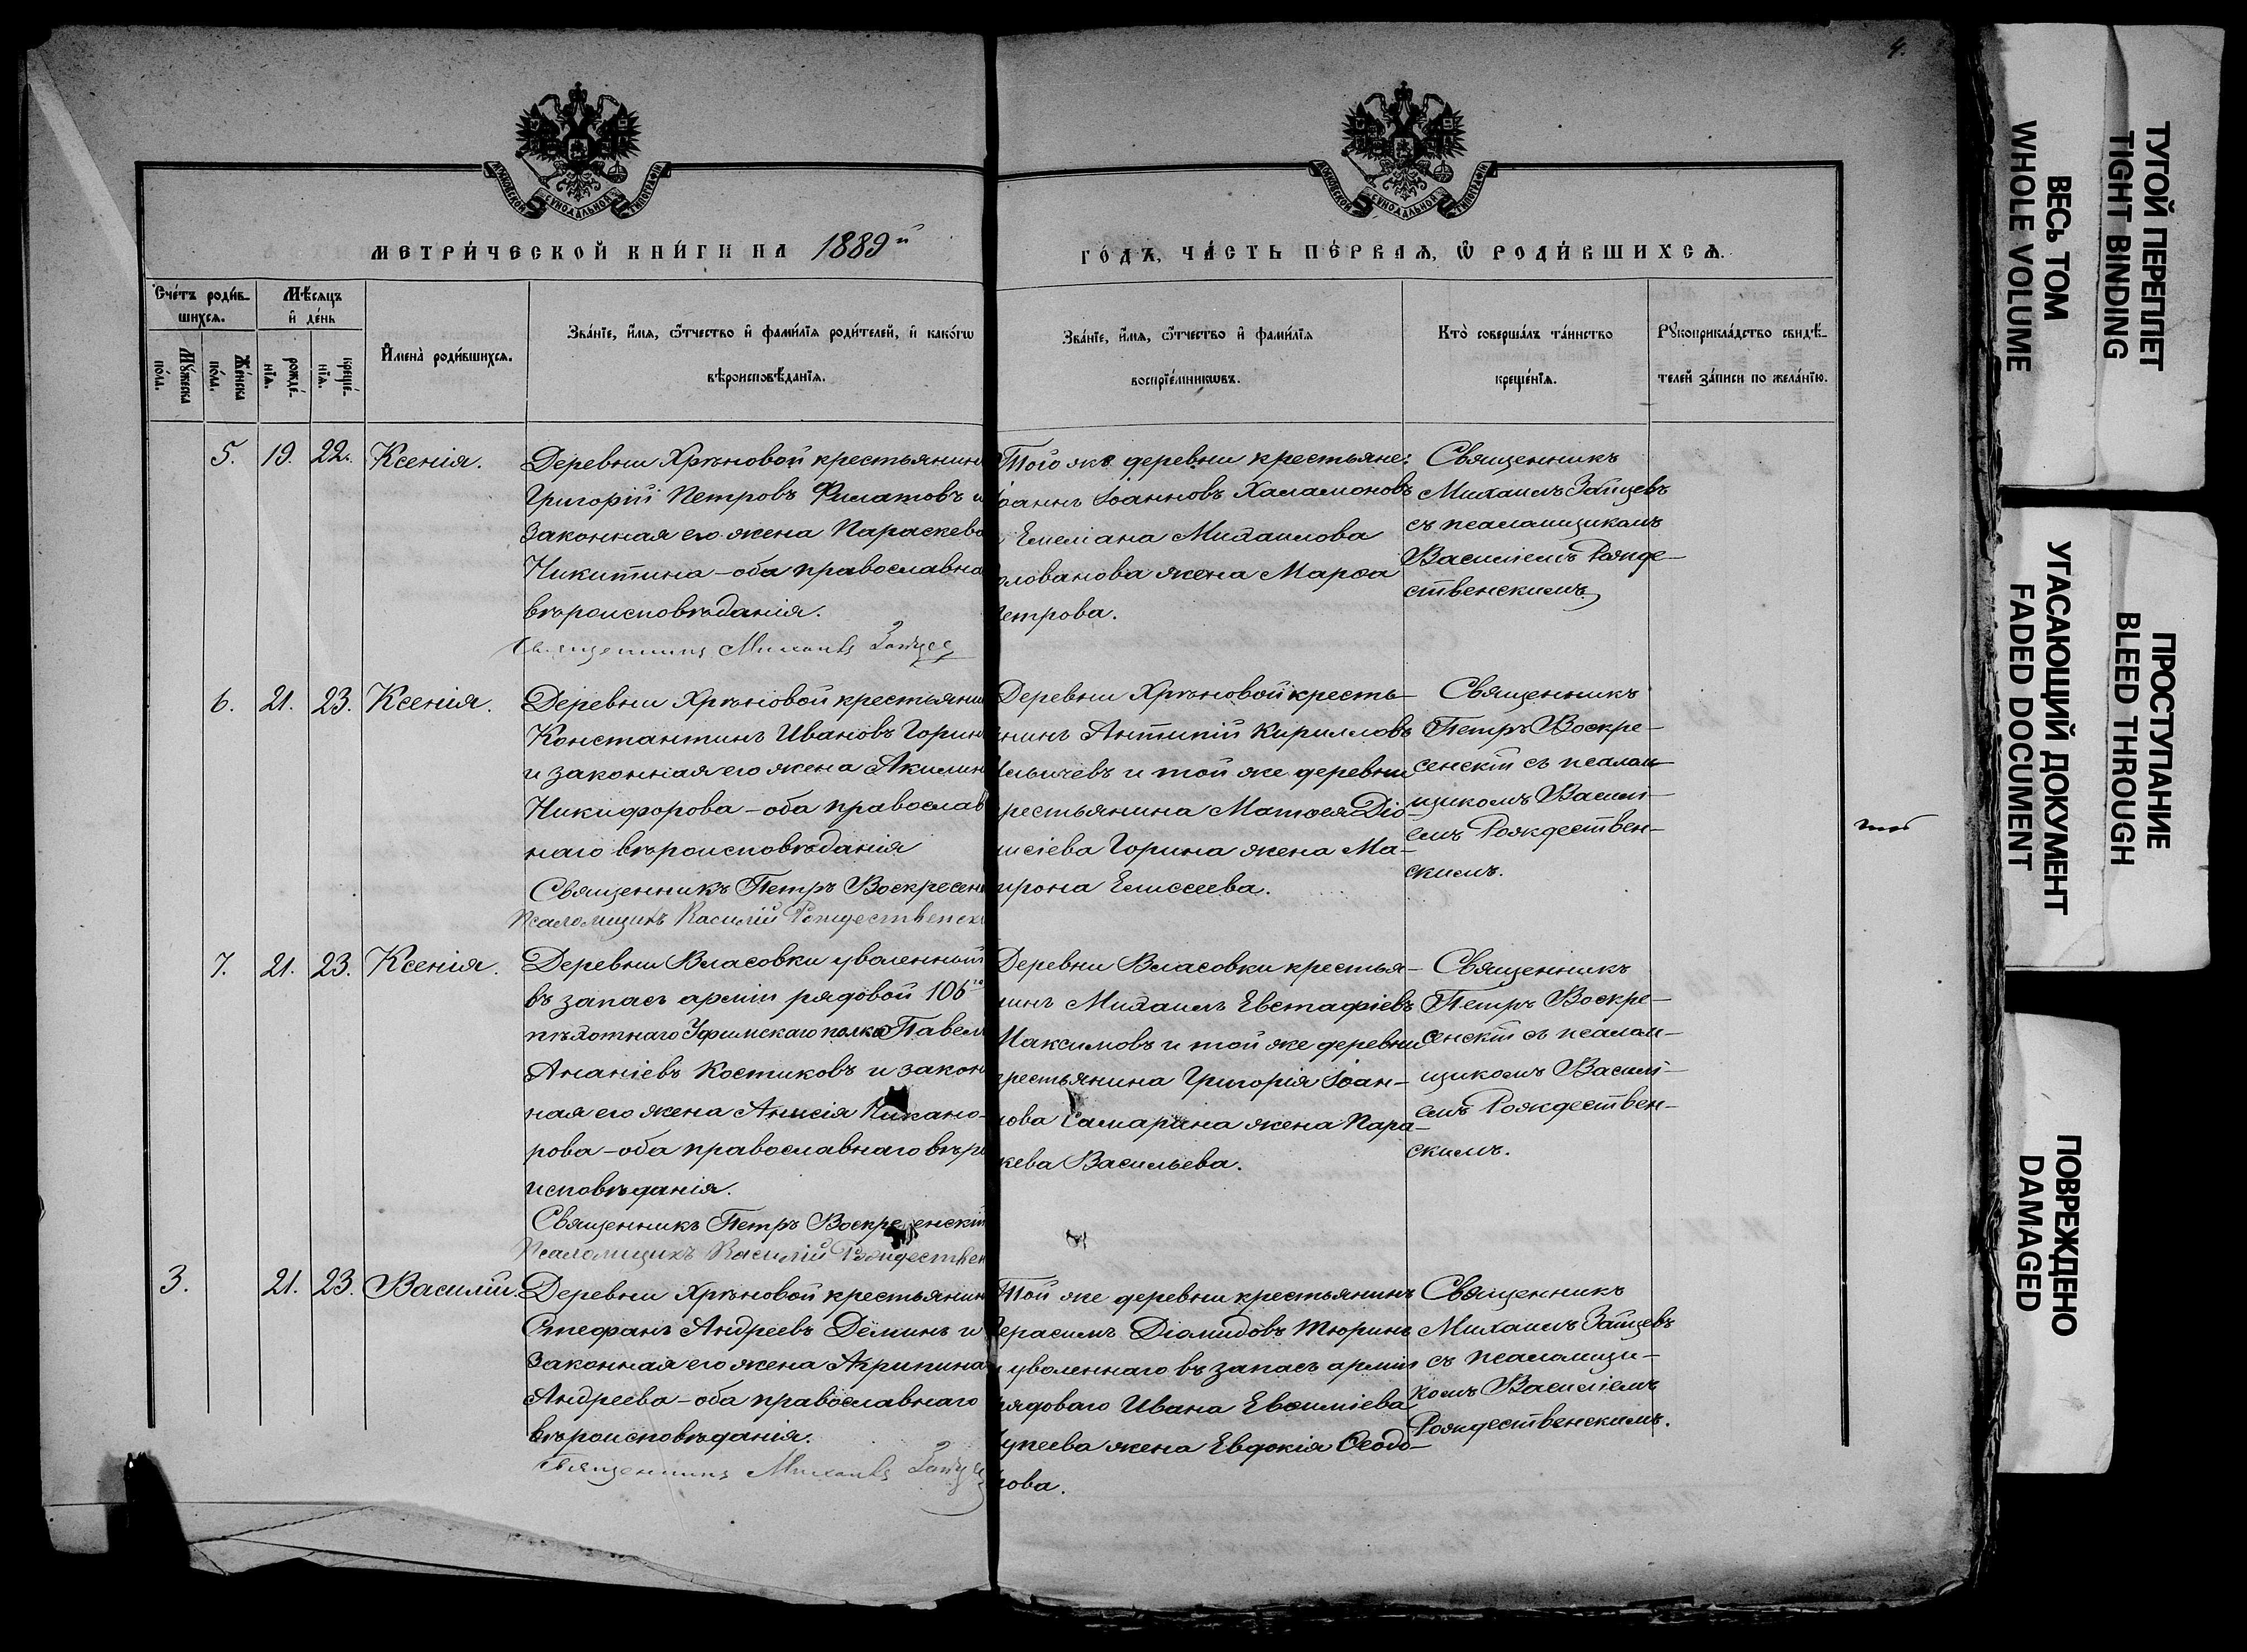 4.
МОСКОВСКОЙ СУНОДАЛЬНОЙ ТИПОГРАФІИ
МОСКОВСКОЙ СУНОДАЛЬНОЙ ТИПОГРАФІИ
МЕТРИ́ЧЕСКОЙ КНИ́ГИ НА 1889й
ГО́ДЪ, ЧА́СТЬ ПЕ́РВАѦ, Ѽ РОДИ́ВШИХСѦ.
Счéтъ роди́в-
шихсѧ.
Мѣ́сѧцъ
и҆ де́нь
Мꙋ́жеска по́ла.
Же́нска по́ла.
рожде́-
нїѧ.
креще́-
нїѧ.
И҆мена̀ роди́вшихсѧ.
Зва́нїе, и҆́мѧ, ѻ҆́тчество и҆ фами́лїѧ роди́телей, и҆ како́гѡ
вѣроисповѣ́данїѧ.
Зва́нїе, и҆́мѧ, ѻ҆́тчество и҆ фами́лїѧ
воспрїе́мникѡвъ.
Кто̀ соверша́лъ та́инство
креще́нїѧ.
Рꙋкоприкла́дство свидѣ́-
телей за́писи по жела́нїю.
5. 19. 22. Ксенія.
Деревни Хрѣновой крестьянин
Григорій Петровъ Филатовъ и
законная его жена Параскева
Никитина – оба православна
вѣроисповѣданія.
Священникъ Михаилъ Зайцев
Того же деревни крестьяне:
оаннъ Іоанновъ Халамоновъ
Емеліана Михаилова
олованова жена Марѳа
етрова.
Священникъ
Михаилъ Зайцевъ
съ псаломщикомъ
Василіемъ Рожде-
ственскимъ.
6. 21. 23. Ксенія.
Деревни Хрѣновой крестьянин
Константинъ Ивановъ Горин
и законная его жена Акилин
Никифорова – оба православ
наго вѣроисповѣданія
Священникъ Петръ Воскресен
Псаломщикъ Василій Рождественск
Деревни Хрѣновой кресть-
нинъ Антипій Кирилловъ
льичевъ и той же деревни
рестьянина Матѳея Діо-
нисіева Горина жена Ма-
трона Елисеева.
Священникъ
Петръ Воскре-
сенскій съ псалом-
щикомъ Василі-
емъ Рождествен-
скимъ.
7. 21. 23. Ксенія.
Деревни Власовки уволенный
въ запасъ арміи рядовой 106го
пѣхотнаго Уфимскаго полка Павел
Ананіевъ Костиковъ и закон
ная его жена Анисія Никано-
рова – оба православнаго вѣро
исповѣданія.
Священникъ Петръ Воскресенскій
Псаломщикъ Василій Рождествен
Деревни Власовки крестья-
нинъ Михаилъ Евстафіевъ
Максимовъ и той же деревни
крестьянина Григорія Іоан-
нова Самарина жена Пара-
кева Васильева.
Священникъ
Петръ Воскре-
сенскій съ псалом-
щикомъ Василі-
емъ Рождествен-
скимъ.
3. 21. 23. Василій.
Деревни Хрѣновой крестьянин
Стефанъ Андреевъ Дёминъ и
законная его жена Агрипина
Андреева – оба православнаго
вѣроисповѣданія.
Священникъ Михаилъ Зайцев
Той же деревни крестьянинъ
Герасимъ Діомидовъ Тюринъ
и уволеннаго въ запасъ арміи
рядоваго Ивана Евѳиміева
упеева жена Евдокія Ѳеодо-
рова.
Священникъ
Михаилъ Зайцевъ
съ псаломщи-
комъ Василіемъ
Рождественскимъ.
ТУГОЙ ПЕРЕПЛЕТ
TIGHT BINDING
ВЕСЬ ТОМ
WHOLE VOLUME
ПРОСТУПАНИЕ
BLEED THROUGH
УГАСАЮЩИЙ ДОКУМЕНТ
FADED DOCUMENT
ПОВРЕЖДЕНО
DAMAGED